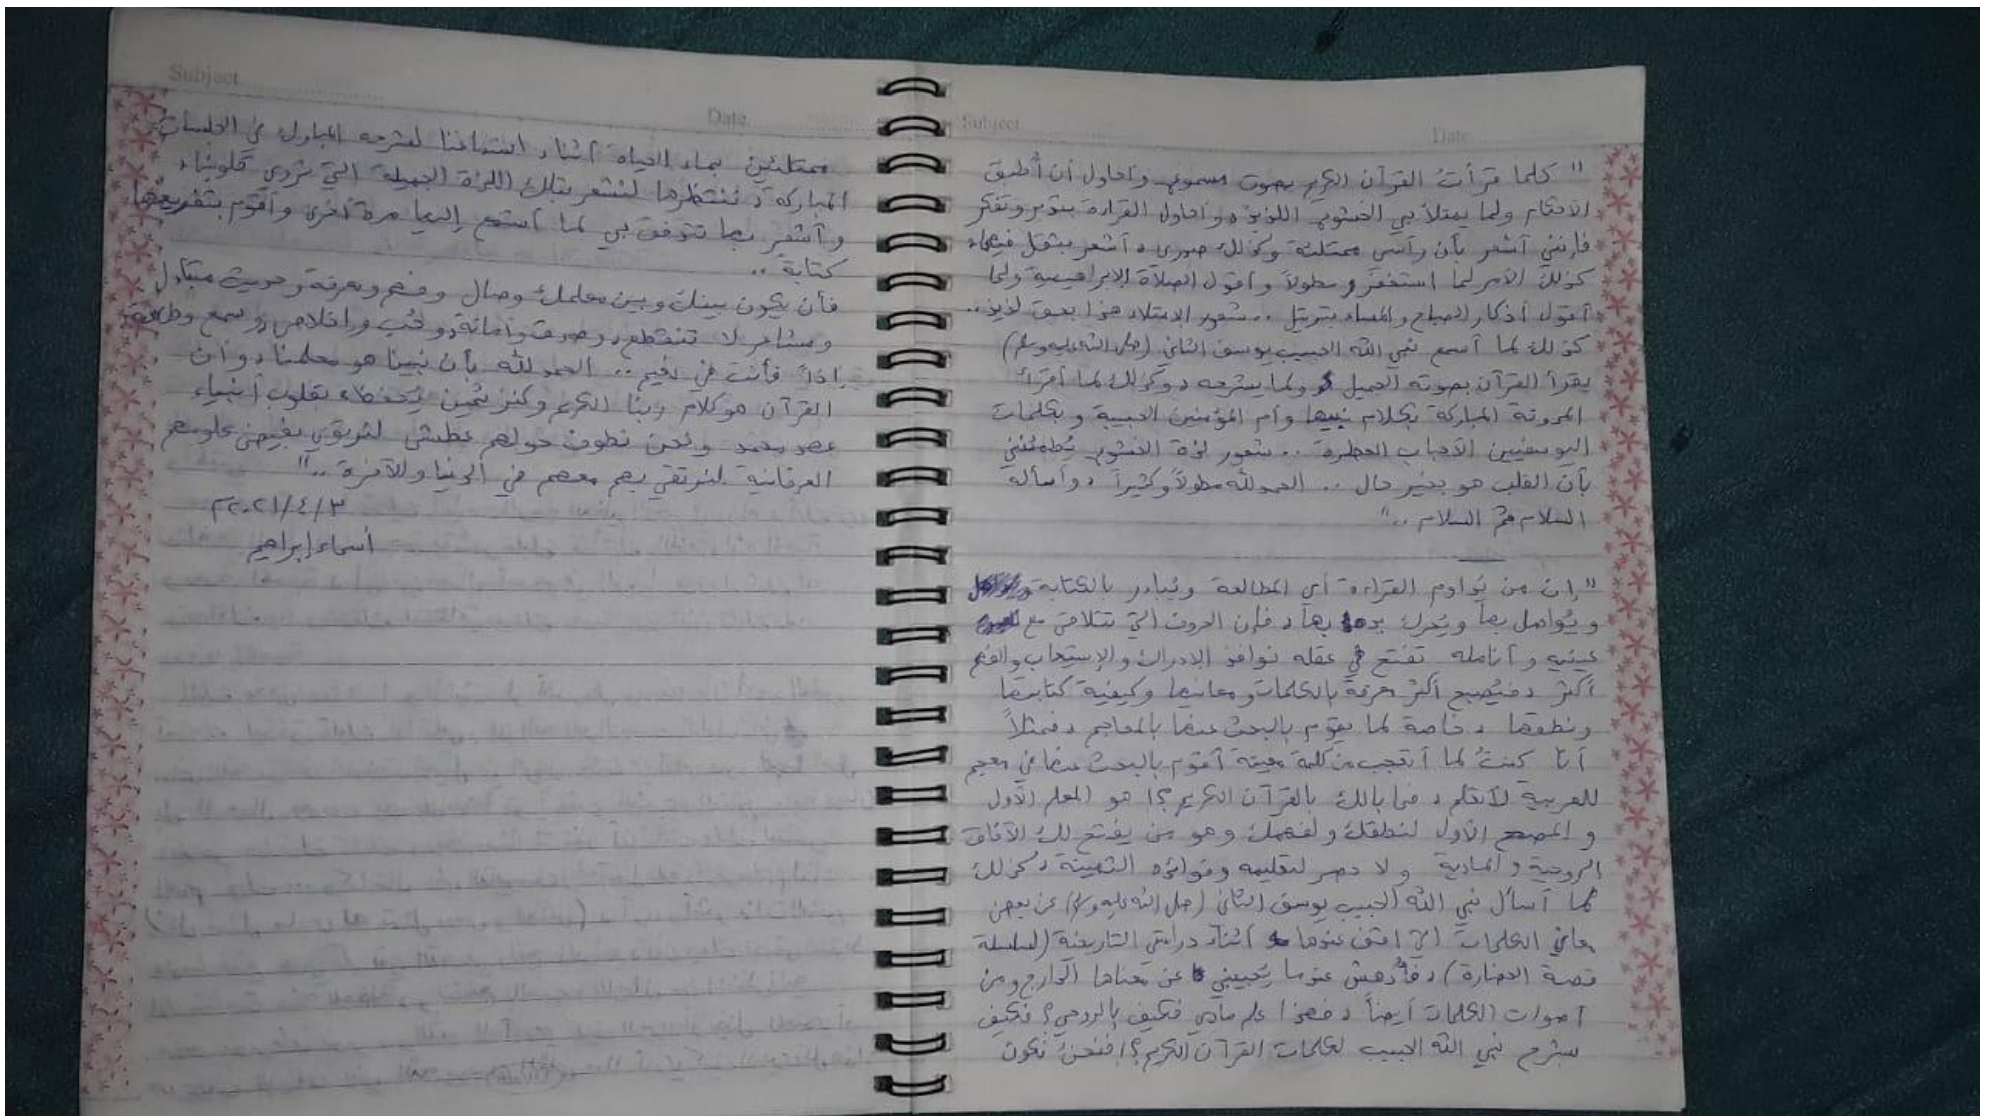 Subject
Date
" كلما قرأت القرآن الكريم بصوت مسموع, وأحاول أن أُطبق
الأحكام ولما يمتلأ بي الخشوع اللذيذ, وأحاول القراءة بتدبر وتفكر
فإنني أشعر بأن رأسي ممتلئة وكذلك صدري, أشعر بثقل فيهما,
كذلك الأمر لما استغفر مطولاً وأقول الصلاة الإبراهيمية ولما
أقول أذكار الصباح والمساء بترتيل .. شعور الامتلاء هذا بحق لذيذ..
كذلك لما أسمع نبي الله الحبيب يوسف الثاني (صلى الله عليه وسلم)
يقرأ القرآن بصوته الجميل ولما يشرحه, وكذلك لما أقرأ
المدونة المباركة بكلام نبيها وأم المؤمنين الحبيبة وبكلمات
اليوسفيين الأحباب العطرة .. شعور لذة الخشوع يُطمئنني
بأن القلب هو بخير حال .. الحمدلله مطولاً وكثيراً, وأسأله
السلام ثم السلام .."
"إن من يُداوم القراءة أي المطالعة ويُبادر بالكتابة
ويُواصل بها ويُحرك يده بها, فإن الحروف التي تتلاقى مع
عينيه وأنامله تفتح في عقله نوافذ الإدراك والإستيعاب والفهم
أكثر, فيُصبح أكثر معرفة بالكلمات ومعانيها وكيفية كتابتها
ونطقها, خاصة لما يقوم بالبحث عنها بالمعاجم, فمثلاً
أنا كنتُ لما أتعجب من كلمة معينة أقوم بالبحث عنها في معجم
للعربية لأتعلم, فما بالك بالقرآن الكريم؟! هو المعلم الأول
و المصحح الأول لنطقك ولفهمك وهو من يفتح لك الآفاق
الروحية والمادية ولا حصر لتعليمه وفوائده الثمينة, كذلك
لما أسأل نبي الله الحبيب يوسف الثاني (صلى الله عليه وسلم) عن بعض
معاني الكلمات التي أقف عندها أثناء دراستي التاريخية (لسلسلة
قصة الحضارة), فأُدهش عندما يُجيبني عن معناها الدارج ومن
أصوات الكلمات أيضاً, فهذا علم مادي فكيف بالروحي؟ فكيف
بشرح نبي الله الحبيب لكلمات القرآن الكريم؟! فنحنُ نكون
Subject
Date
ممتلئين بماء الحياة أثناء استماعنا لشرحه المبارك في الجلسات
المباركة, ننتظرها لنشعر بتلك اللذة الجميلة التي تروي قلوبنا,
وأشعر بها تتدفق بي لما أستمع إليها مرة أخرى وأقوم بتفريغها
كتابة ..
فأن يكون بينك وبين معلمك وصال وفهم ومعرفة وحديث متبادل
ومشاعر لا تنقطع, وصدق وأمانة, وحُب وإخلاص, وسمع وطاعة,
إذاً فأنت في نعيم .. الحمدلله بأن نبينا هو معلمنا, وأن
القرآن هو كلام ربنا الكريم وكنز ثمين يُحفظ بقلوب أنبياء
عهد محمد ونحن نطوف حولهم عطشى لنرتوي بفيض علومهم
العرفانية لنرتقي بهم معهم في الدنيا والآخرة .."
٢٠٢١/٤/٣م
أسماء إبراهيم